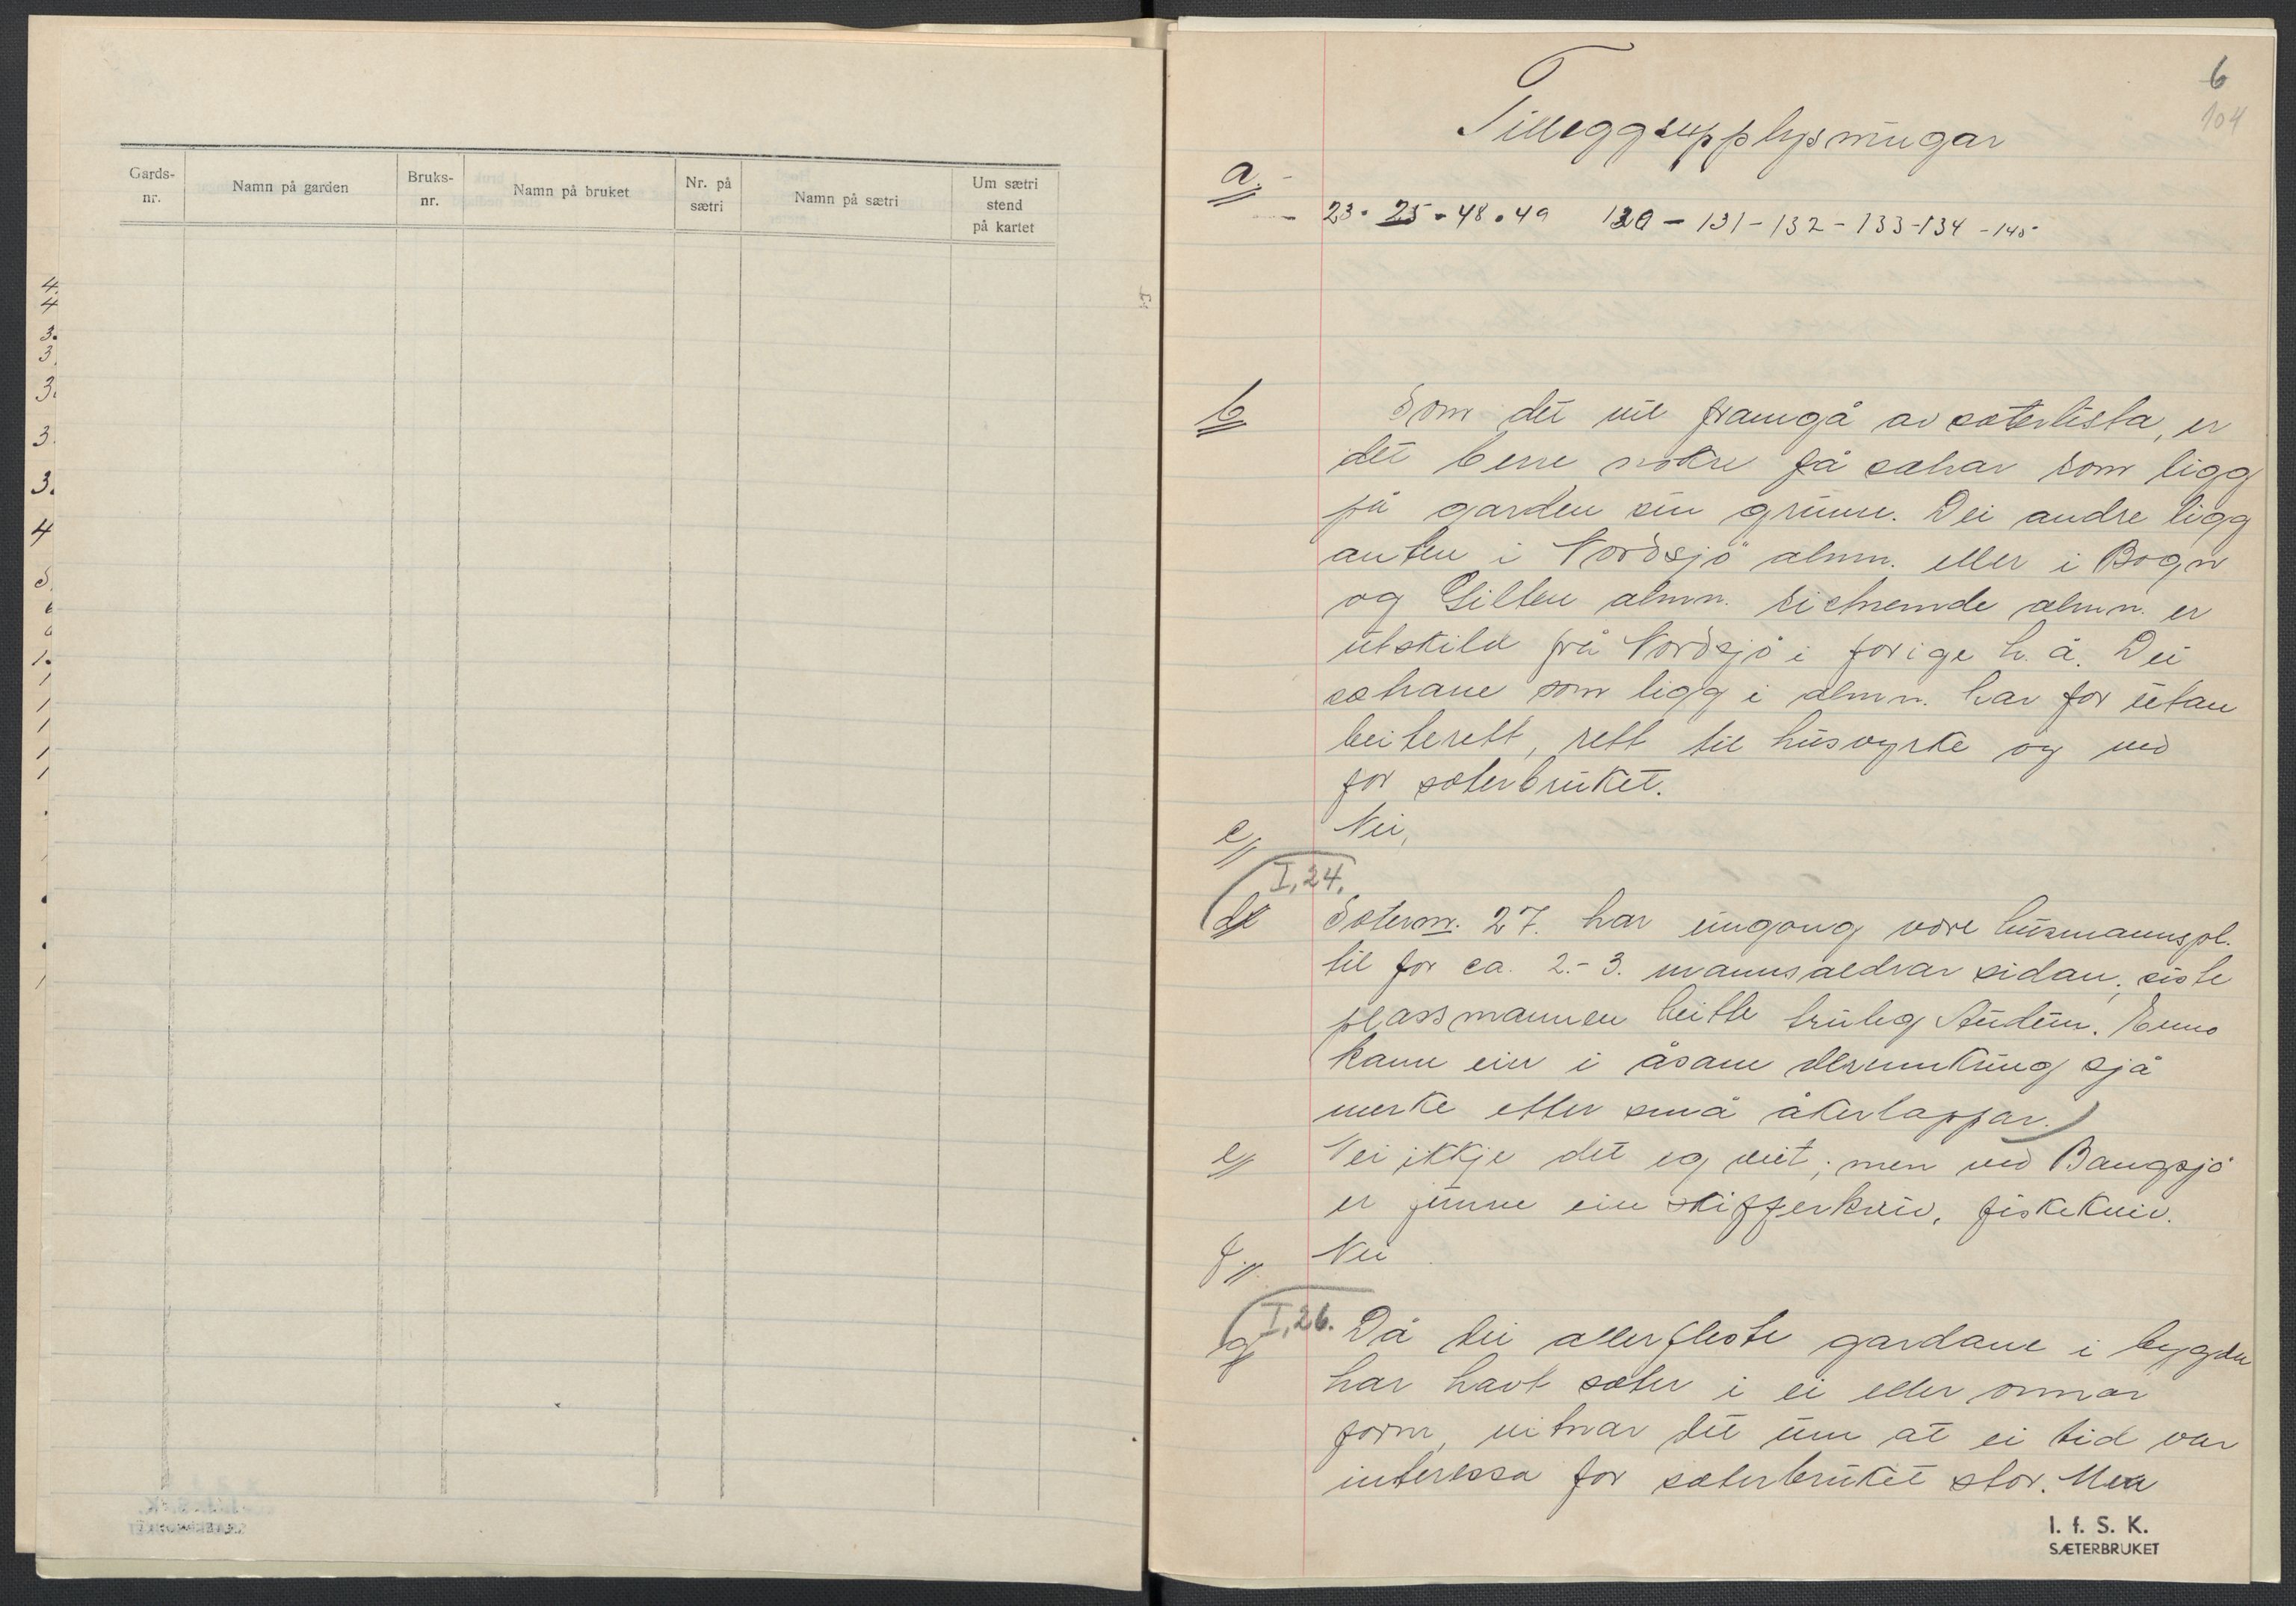 Gards-
nr.
Namn på garden
Bruks-
nr.
Namn på bruket
Nr. på
sætri
Namn på sætri
Um sætri
stend
på kartet
6
104
Tilleggsupplysningar
a.
23 · 25 - 48 · 49 130 - 131 - 132 - 133 - 134 - 145
b
Som det vil framgå av sæterlista, er
det berre nokre få sætrar som ligg
på garden sin grunn. Dei andre ligg
anten i Nordsjø almn. eller i Bogn
og Gilten almn. Sistnemde almn. er
utskild frå Nordsjø i forige h. å. Dei
sætrane som ligg i almn. har for utan
beiterett, rett til husvyrke og ved
for sæterbruket.
c
Nei,
I, 24.
d
Sæternr. 27. har eingong vore husmannspl.
til for ca. 2.- 3. mannsaldrar sidan; siste
plassmannen heitte truleg Audun. Enno
kann ein i åsane derumkring sjå
merke etter små åkerlappar.
e
Nei ikkje det eg veit; men ved Bangsjø
er funne ein skifferkniv, fiskekniv.
f.
Nei
I, 26.
g
Då dei aller fleste gardane i bygden
har havt sæter i ei eller onnor
form, vitnar det um at ei tid var
interessa for sæterbruket stor. Men
I. f. S. K.
SÆTERBRUKET